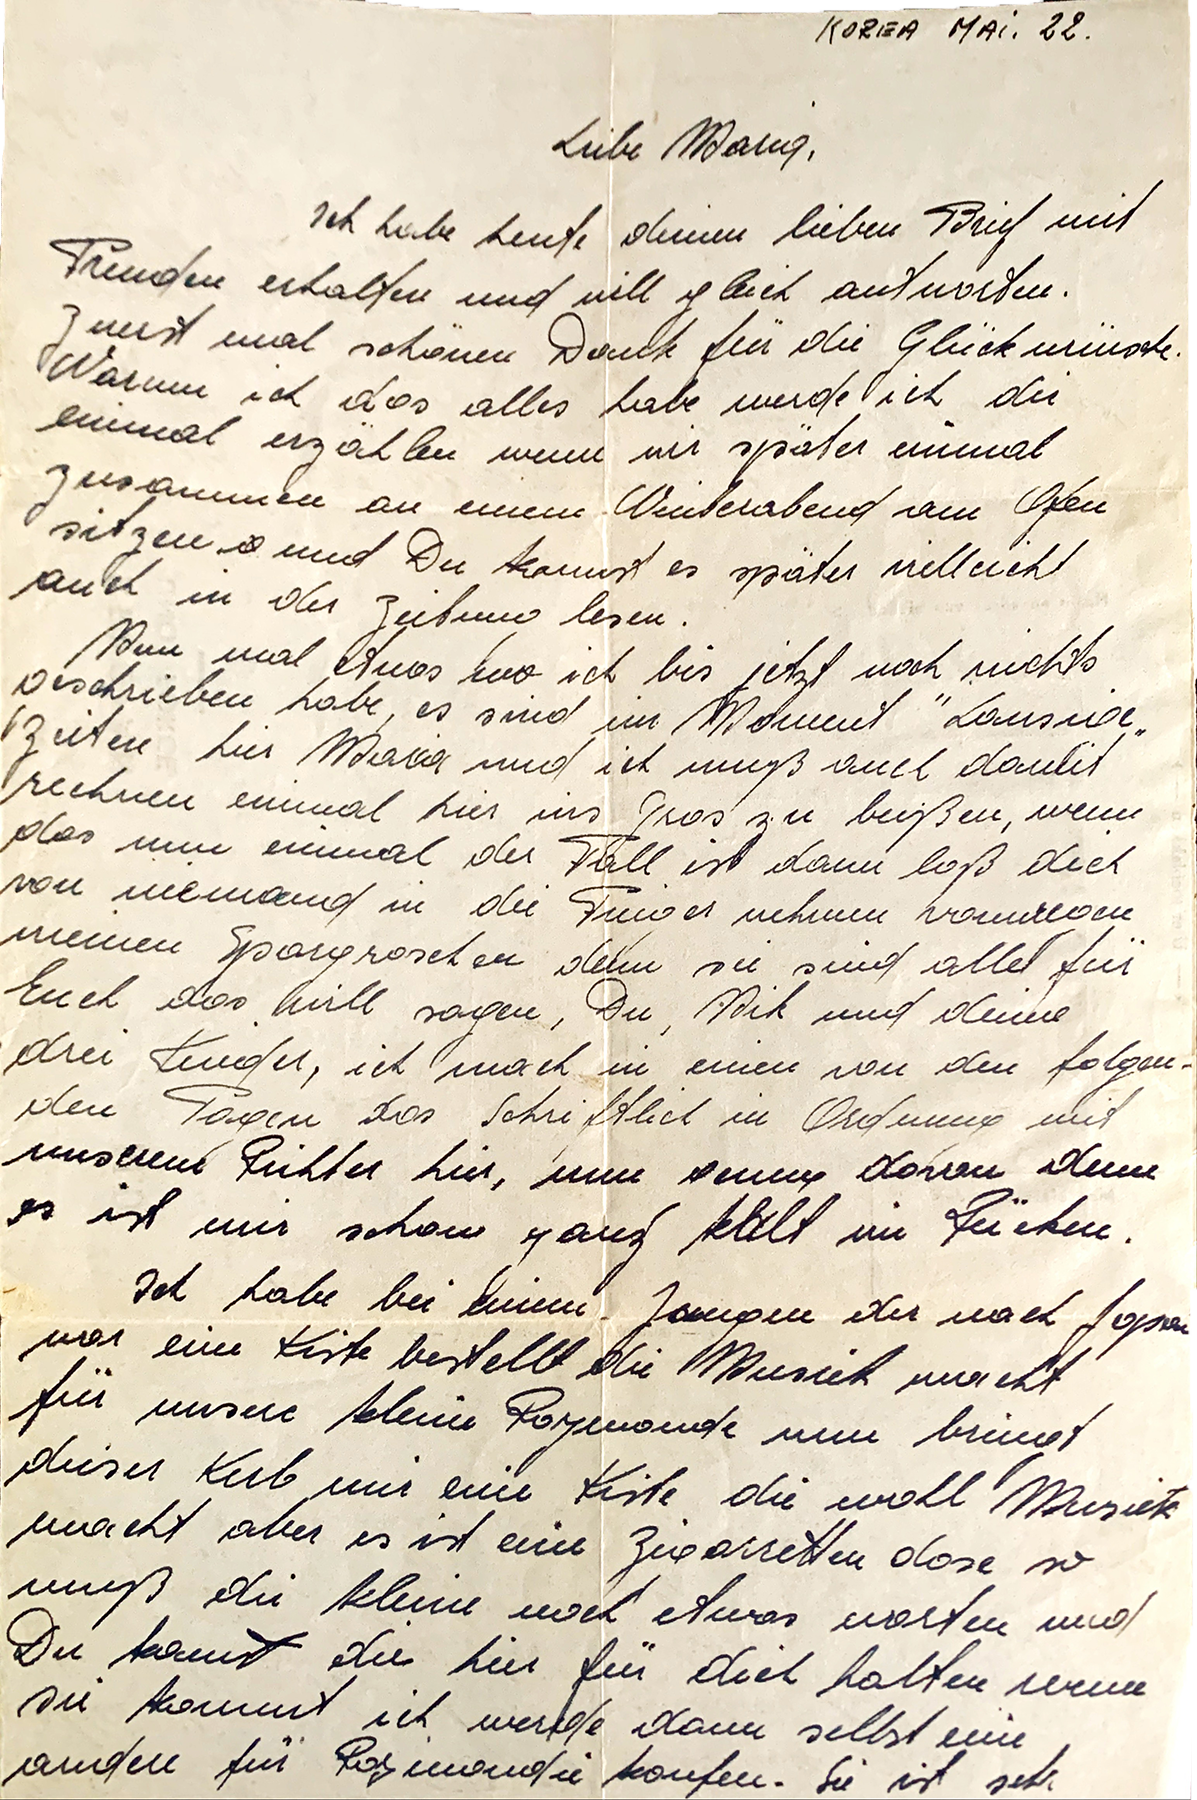 KOREA MAI. 22.
Liebe Maria,
Ich habe heute deinen lieben Brief mit
Freuden erhalten und will gleich antworten.
Zuerst mal schönen Dank für die Glückwünsche.
Warum ich das alles habe werde ich dir
einmal erzählen wenn wir später einmal
zusammen an einem Winterabend am Ofen
sitzen und Du kannst es später vielleicht
auch in der Zeitung lesen.
Nun mal etwas wo ich bis jetzt noch nichts
geschrieben habe, es sind im Moment "Lausige"
Zeiten hier Maria und ich muß auch damit
rechnen einmal hier ins Gras zu beißen, wenn
das nun einmal der Fall ist dann laß dich
von niemand in die Finger nehmen vonwegen
meinen Spargroschen denn sie sind alle für
Euch das will sagen, Du, Nik und deine
drei Kinder, ich mach in einen von den folgen-
den Tagen das Schriftlich in Ordnung mit
unserem Richter hier, nun genug davon denn
es ist mir schon ganz kalt im Rücken.
Ich habe bei einem Jungen der nach Japan
war eine Kiste bestellt die Musick macht
für unsere kleine Raymonde nun bringt
dieser Kerl mir eine Kiste die wohl Musick
macht aber es ist eine Zigarretten dose so
muß die kleine noch etwas warten und
Du kanst die hier für dich halten wenn
sie kommt ich werde dann selbst eine
andere für Raymondie kaufen. Sie ist sehr